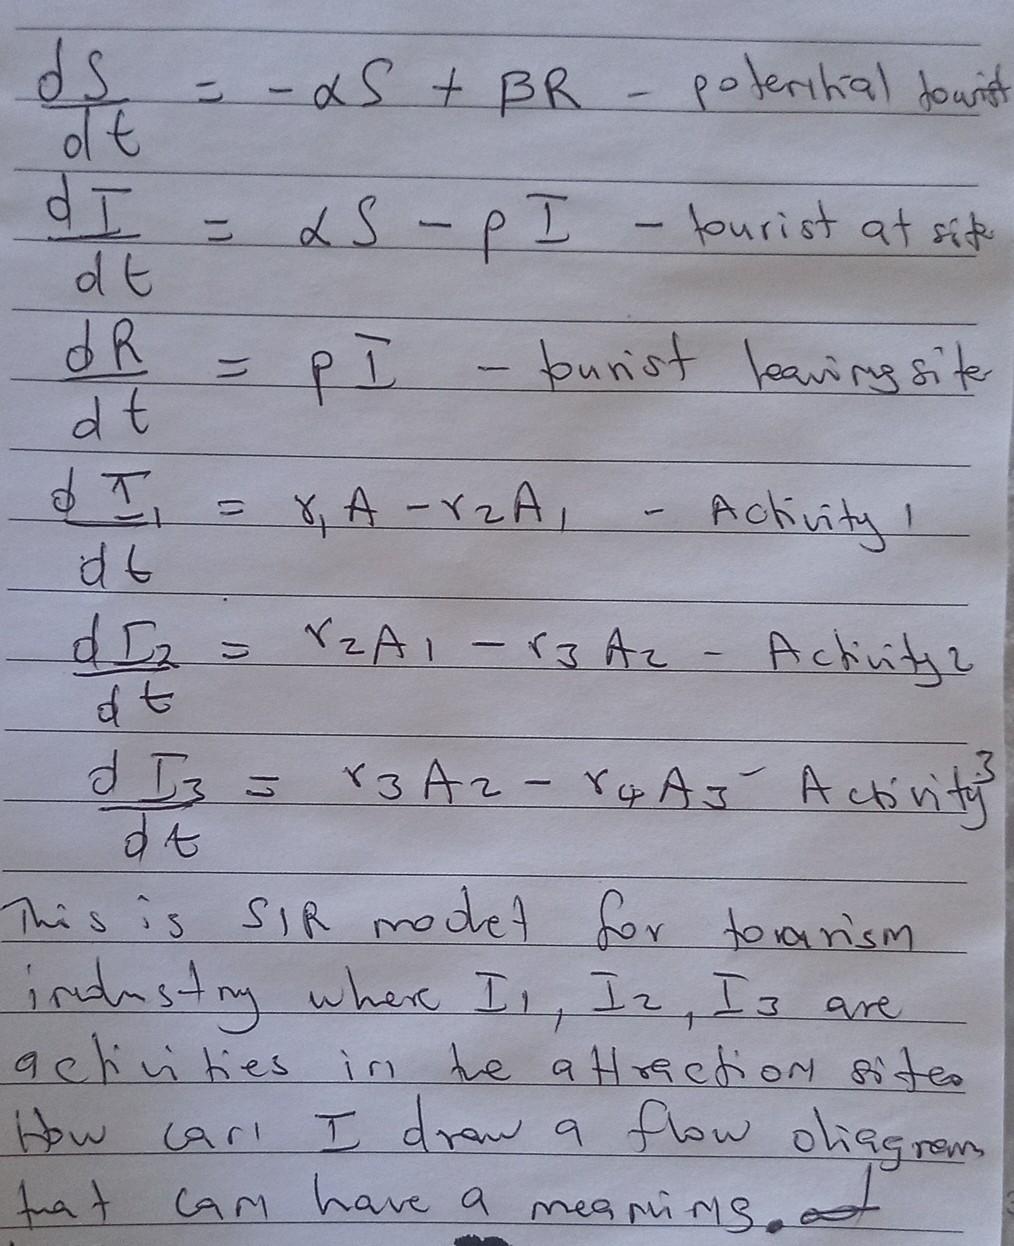 dS/dt = -αS + βR - potential tourist
dI/dt = αS - ρI - tourist at site
dR/dt = ρI - tourist leaving site
dI₁/dt = r₁A - r₂A₁ - Activity 1
dI₂/dt = r₂A₁ - r₃A₂ - Activity 2
dI₃/dt = r₃A₂ - r₄A₃ - Activity 3
This is SIR model for tourism
industry where I₁, I₂, I₃ are
activities in the attraction site.
How can I draw a flow diagram
that can have a meaning.